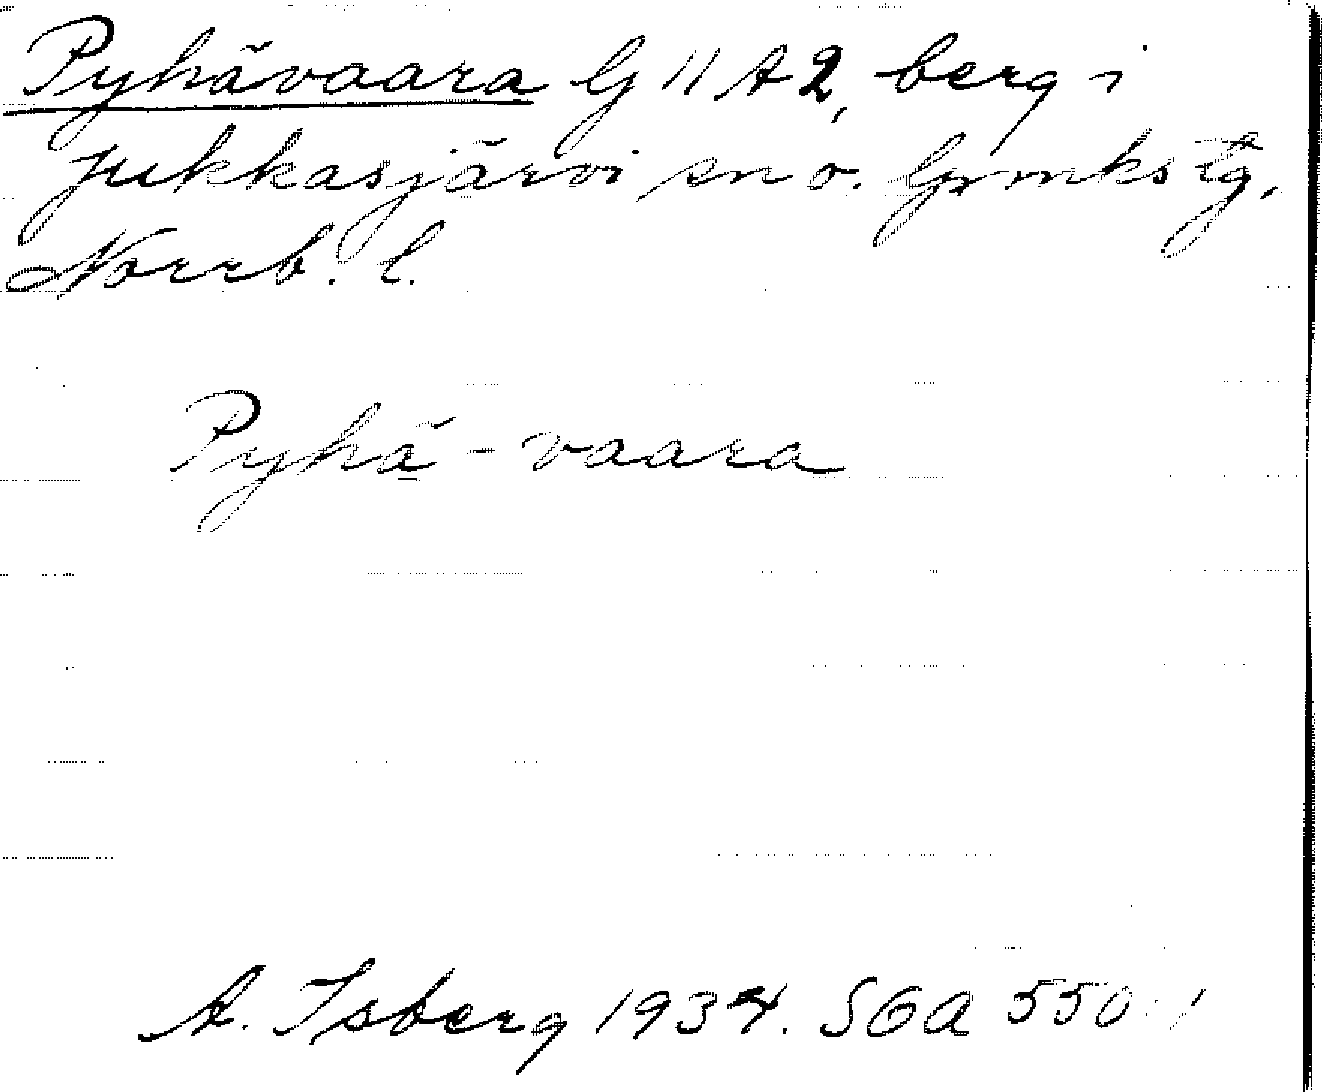 Pyhävaara G 11 A 2, berg i
Jukkasjärvi sn o. lpmkstg,
Norrb. l.
Pyhä - vaara
A. Isberg 1934. SGA 550:1